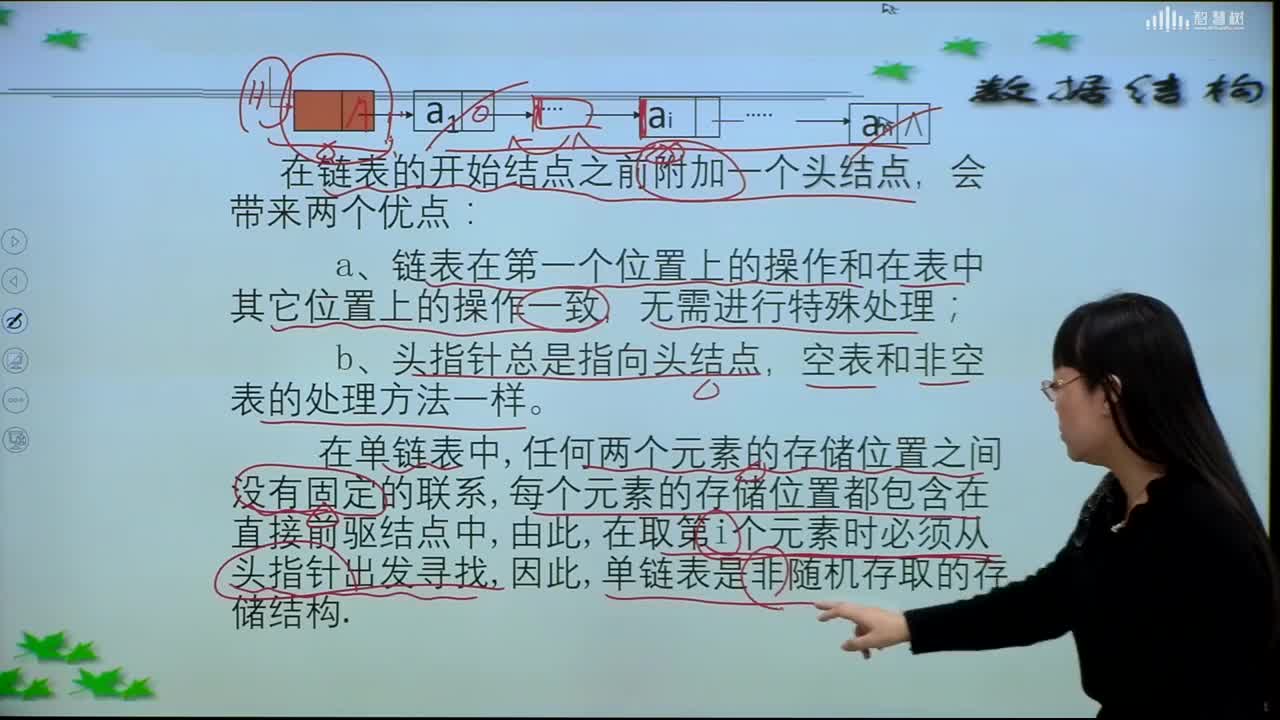 智慧树
数据结构
H
a1 0 ····· ai ····· an ∧
在链表的开始结点之前附加一个头结点，会
带来两个优点：
a、链表在第一个位置上的操作和在表中
其它位置上的操作一致，无需进行特殊处理；
b、头指针总是指向头结点，空表和非空
表的处理方法一样。
在单链表中,任何两个元素的存储位置之间
没有固定的联系,每个元素的存储位置都包含在
直接前驱结点中,由此,在取第i个元素时必须从
头指针出发寻找,因此,单链表是非随机存取的存
储结构.